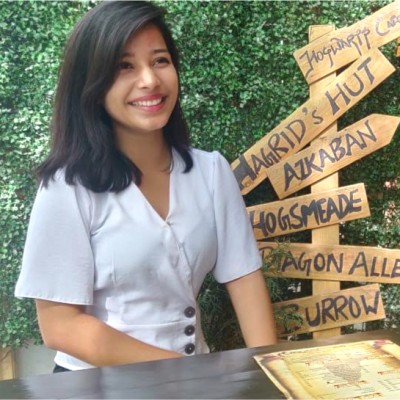 HOGWARTS
HAGRID'S HUT
AZKABAN
HOGSMEADE
DIAGON ALLE
BURROW